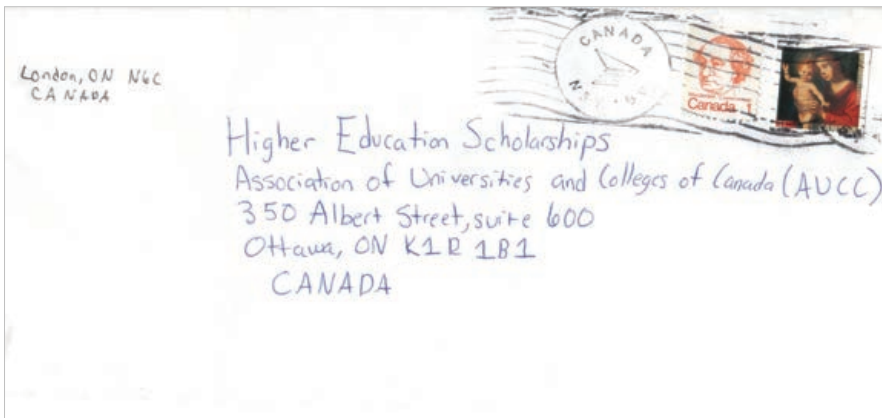 London, ON N6C
CANADA
CANADA
Canada 1
Higher Education Scholarships
Association of Universities and Colleges of Canada (AUCC)
350 Albert Street, suite 600
Ottawa, ON K1R 1B1
CANADA